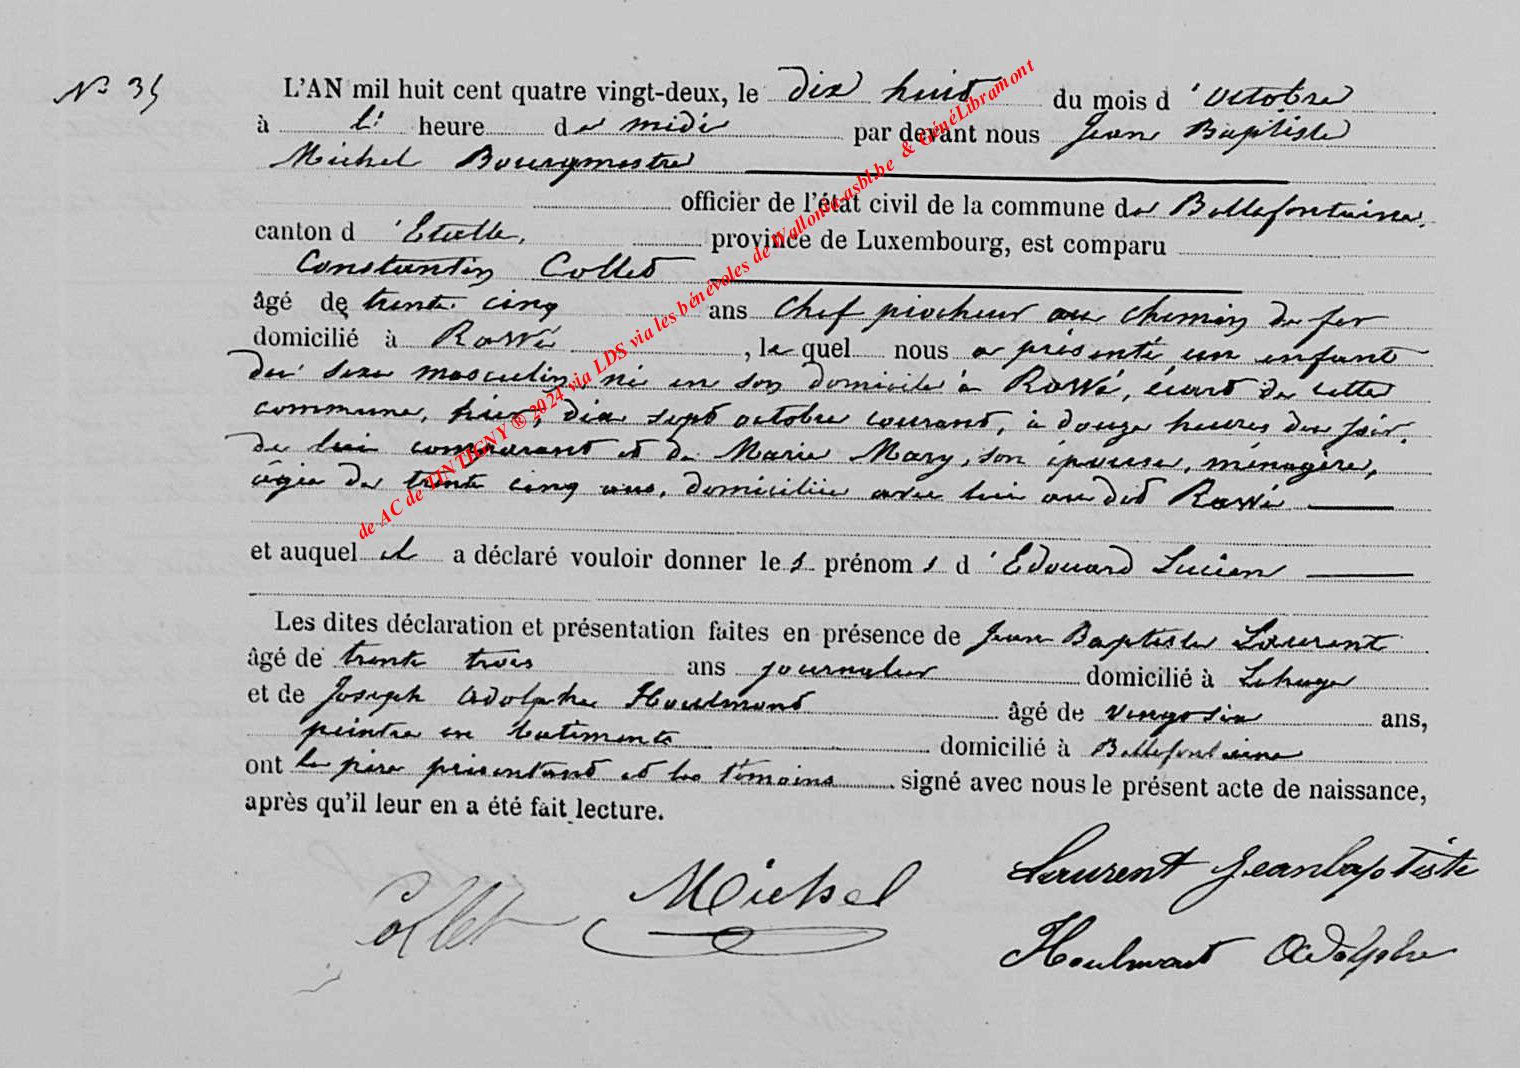 N° 35
L'AN mil huit cent quatre vingt-deux, le dix huit du mois d'octobre
à l' heure de midi par devant nous Jean Baptiste
Michel Bourgmestre
officier de l'état civil de la commune de Bellefontaine,
canton d'Etalle, province de Luxembourg, est comparu
Constantin Collet
âgé de trente cinq ans chef piocheur au chemin de fer
domicilié à Rawé, le quel nous a présenté un enfant
du sexe masculin, né en son domicile à Rawé, écart de cette
commune, hier, dix sept octobre courant, à douze heures du soir,
de lui comparant et de Marie Mary, son épouse, ménagère,
âgée de trente cinq ans, domiciliée avec lui au dit Rawé
et auquel il a déclaré vouloir donner les prénoms d'Edouard Lucien
Les dites déclaration et présentation faites en présence de Jean Baptiste Laurent
âgé de trente trois ans journalier domicilié à Lahage
et de Joseph Adolphe Houlmont âgé de vingt six ans,
peintre en batiments domicilié à Bellefontaine
ont le père présentant et les témoins signé avec nous le présent acte de naissance,
après qu'il leur en a été fait lecture.
Collet Michel Laurent Jean baptiste
Houlmont Adolphe
de AC de TINTIGNY ® 2024 via LDS via les bénévoles de Wallonia-asbl.be & GénéLibramont